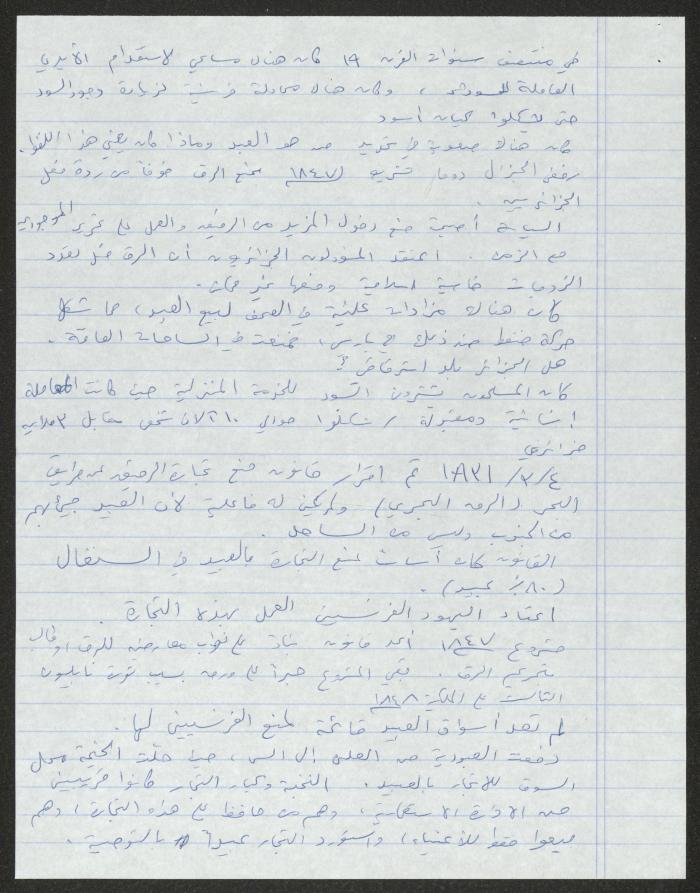 في منتصف سنوات القرن ١٩ كان هناك مساعي لاستقدام الأيدي
العاملة السوداء، وكان هناك محاولة فرنسية لزيادة وجود السود
حتى يشكلوا كيان أسود
كان هناك صعوبة في تحديد من هو العبد وماذا كان يعني هذا اللفظ.
رفض الجنرال دوما تشريع ١٨٤٧ بمنع الرق خوفاً من ردة فعل
الجزائريين.
السياسة أصبحت منع دخول المزيد من الرقيق والعمل على تحرير الموجودين
مع الزمن. اعتقد المسؤولون الجزائريون أن الرق مثل تعدد
الزوجات خاصية إسلامية ومنعها غير
كان هناك مزادات علنية في الصحف لبيع العبيد، مما شكل
حركة ضغط ضد ذلك في باريس، فمنعت في الساحات العامة.
هل الجزائر بلد استرقاقي؟
كان المسلمون يشترون السود للخدمة المنزلية حيث كانت المعاملة
إنسانية ومقبولة / شكلوا حوالي ١٠ آلاف شخص مقابل ٣ ملايين
جزائري
٤/٣/١٨٣١ تم إقرار قانون منع تجارة الرقيق عن طريق
البحر (الرق البحري) ولم يكن له فاعلية لأن العبيد جيء بهم
من الجنوب وليس من الساحل.
القانون كان أساساً لمنع التجارة بالعبيد في السنغال
(٨٠٪ عبيد).
اعتاد اليهود الفرنسيين العمل بهذه التجارة.
مشروع ١٨٤٧ أعد قانون بناء على نواب معارضة للرق، وطالب
بتحريم الرق. بقي المشروع حبراً على ورق بسبب ثورة نابليون
الثالث على الملكية ١٨٤٨
لم تعد أسواق العبيد قائمة لمنع الفرنسيين لها.
دفعت العبودية من العلن إلى السر، حيث حلّت الخيمة محل
السوق للاتجار بالعبيد. النخبة وكبار التجار كانوا قريبين
من الإدارة الاستعمارية، وهم من حافظ على هذه التجارة، وهم
يبيعوا فقط للأغنياء، واستورد التجار عبيداً بالتوصية.